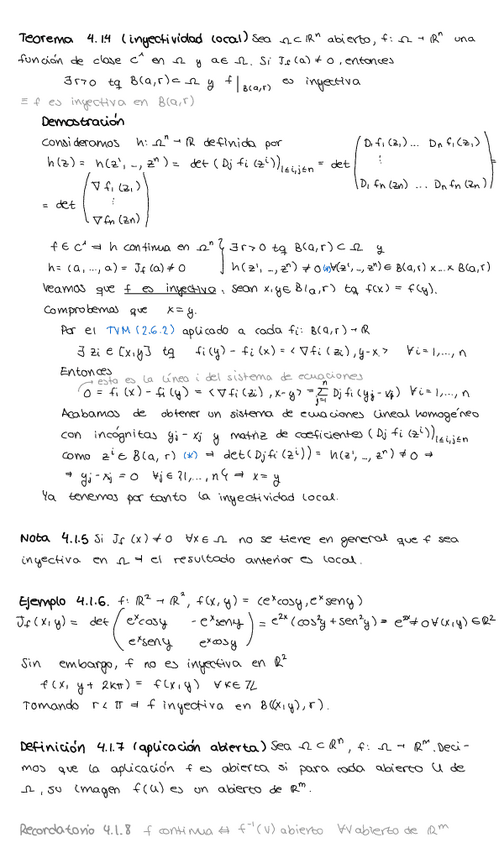 Teorema 4.1.4 (inyectividad local) Sea Ω⊂ℝⁿ abierto, f: Ω → ℝⁿ una
función de clase C¹ en Ω y a∈Ω. Si J_f(a) ≠ 0, entonces
∃r>0 tq B(a,r)⊂Ω y f|_{B(a,r)} es inyectiva
≡ f es inyectiva en B(a,r)
Demostración
Consideramos h: Ωⁿ → ℝ definida por
h(z) = h(z¹, ..., zⁿ) = det (Dj fi (zⁱ))_{1≤i,j≤n} = det ( D₁f₁(z₁) ... Dn f₁(z₁)
⋮
D₁ fn(zn) ... Dn fn(zn) )
= det ( ∇f₁(z₁)
⋮
∇fn(zn) )
f∈C¹ ⇒ h continua en Ωⁿ } ∃r>0 tq B(a,r)⊂Ω y
h = (a, ..., a) = J_f(a) ≠ 0 } h(z¹, ..., zⁿ) ≠ 0 (*) ∀(z¹, ..., zⁿ)∈B(a,r)×...×B(a,r)
Veamos que f es inyectiva. Sean x,y∈B(a,r) tq f(x) = f(y).
Comprobemos que x=y.
Por el TVM (2.6.2) aplicado a cada fi: B(a,r) → ℝ
∃ zi ∈ [x,y] tq fi(y) - fi(x) = <∇fi(zi), y-x> ∀i=1,...,n
Entonces
esta es la línea i del sistema de ecuaciones
0 = fi(x) - fi(y) = <∇fi(zi), x-y> = Σ_{j=1}^{n} Dj fi(yj - xj) ∀i=1,...,n
Acabamos de obtener un sistema de ecuaciones lineal homogéneo
con incógnitas yj - xj y matriz de coeficientes (Dj fi(zⁱ))_{1≤i,j≤n}
como zⁱ∈B(a,r) (*) ⇒ det(Dj fi(zⁱ)) = h(z¹, ..., zⁿ) ≠ 0 ⇒
⇒ yj - xj = 0 ∀j∈{1,...,n} ⇒ x=y
Ya tenemos por tanto la inyectividad local.
Nota 4.1.5 Si J_f(x) ≠ 0 ∀x∈Ω no se tiene en general que f sea
inyectiva en Ω → el resultado anterior es local.
Ejemplo 4.1.6. f: ℝ² → ℝ², f(x,y) = (eˣcosy, eˣseny)
J_f(x,y) = det ( eˣcosy -eˣseny
eˣseny eˣcosy ) = e²ˣ(cos²y + sen²y) = e²ˣ ≠ 0 ∀(x,y)∈ℝ²
Sin embargo, f no es inyectiva en ℝ²
f(x, y+2kπ) = f(x,y) ∀k∈ℤ
Tomando r<π ⇒ f inyectiva en B((x,y),r).
Definición 4.1.7 (aplicación abierta) Sea Ω⊂ℝⁿ, f: Ω → ℝᵐ. Deci-
mos que la aplicación f es abierta si para cada abierto U de
Ω, su imagen f(U) es un abierto de ℝᵐ.
Recordatorio 4.1.8 f continua ⇔ f⁻¹(V) abierto ∀V abierto de ℝᵐ